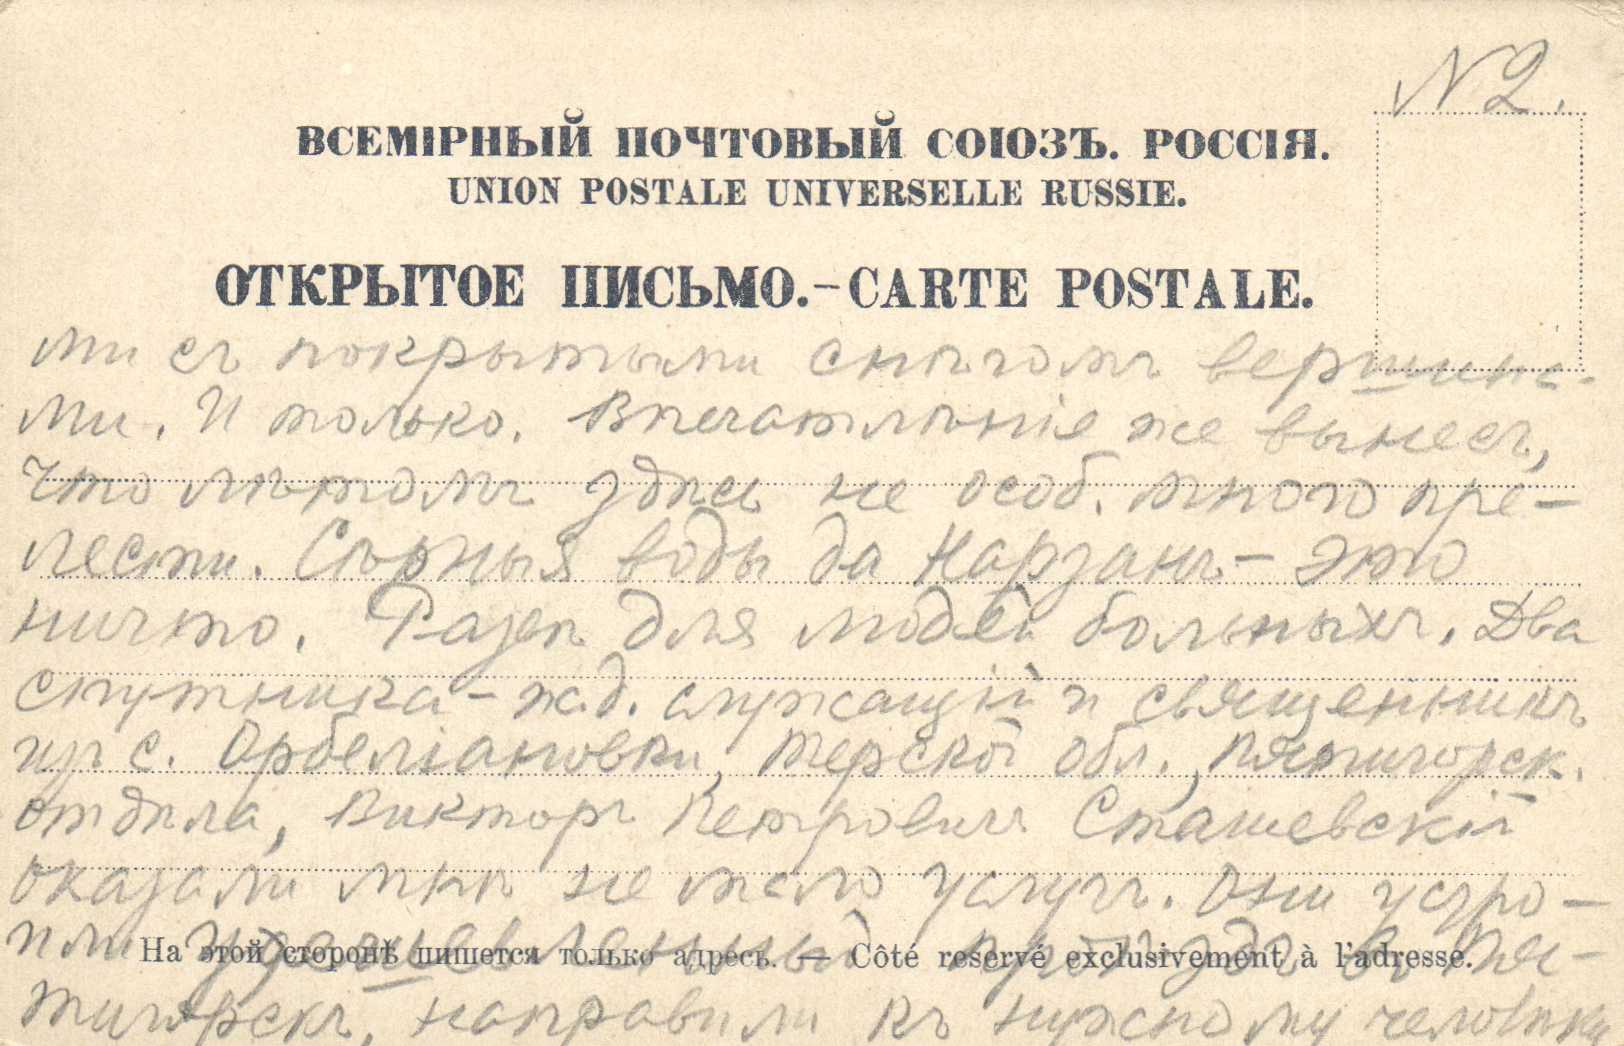 N 2.
ВСЕМІРНЫЙ ПОЧТОВЫЙ СОЮЗЪ. РОССІЯ.
UNION POSTALE UNIVERSELLE RUSSIE.
ОТКРЫТОЕ ПИСЬМО.–CARTE POSTALE.
ми съ покрытыми снѣгомъ вершина-
ми. И только. Впечатлѣніе же вынесъ,
что лѣтомъ здѣсь не особ. много пре-
лести. Сѣрныя воды да Нарзанъ – это
ничто. Развѣ для людей больныхъ. Два
спутника – ж.д. служащій и священникъ
изъ с. Орбеліановки, Терской обл., Пятигорск.
отдѣла, Викторъ Петровичъ Сташевскій
оказали мнѣ не мало услугъ. Они устро-
или удешевленный проѣздъ въ Пя-
На этой сторонѣ пишется только адресъ. — Côté reservé exclusivement à l'adresse.
тигорскъ, направили къ нужному человѣку